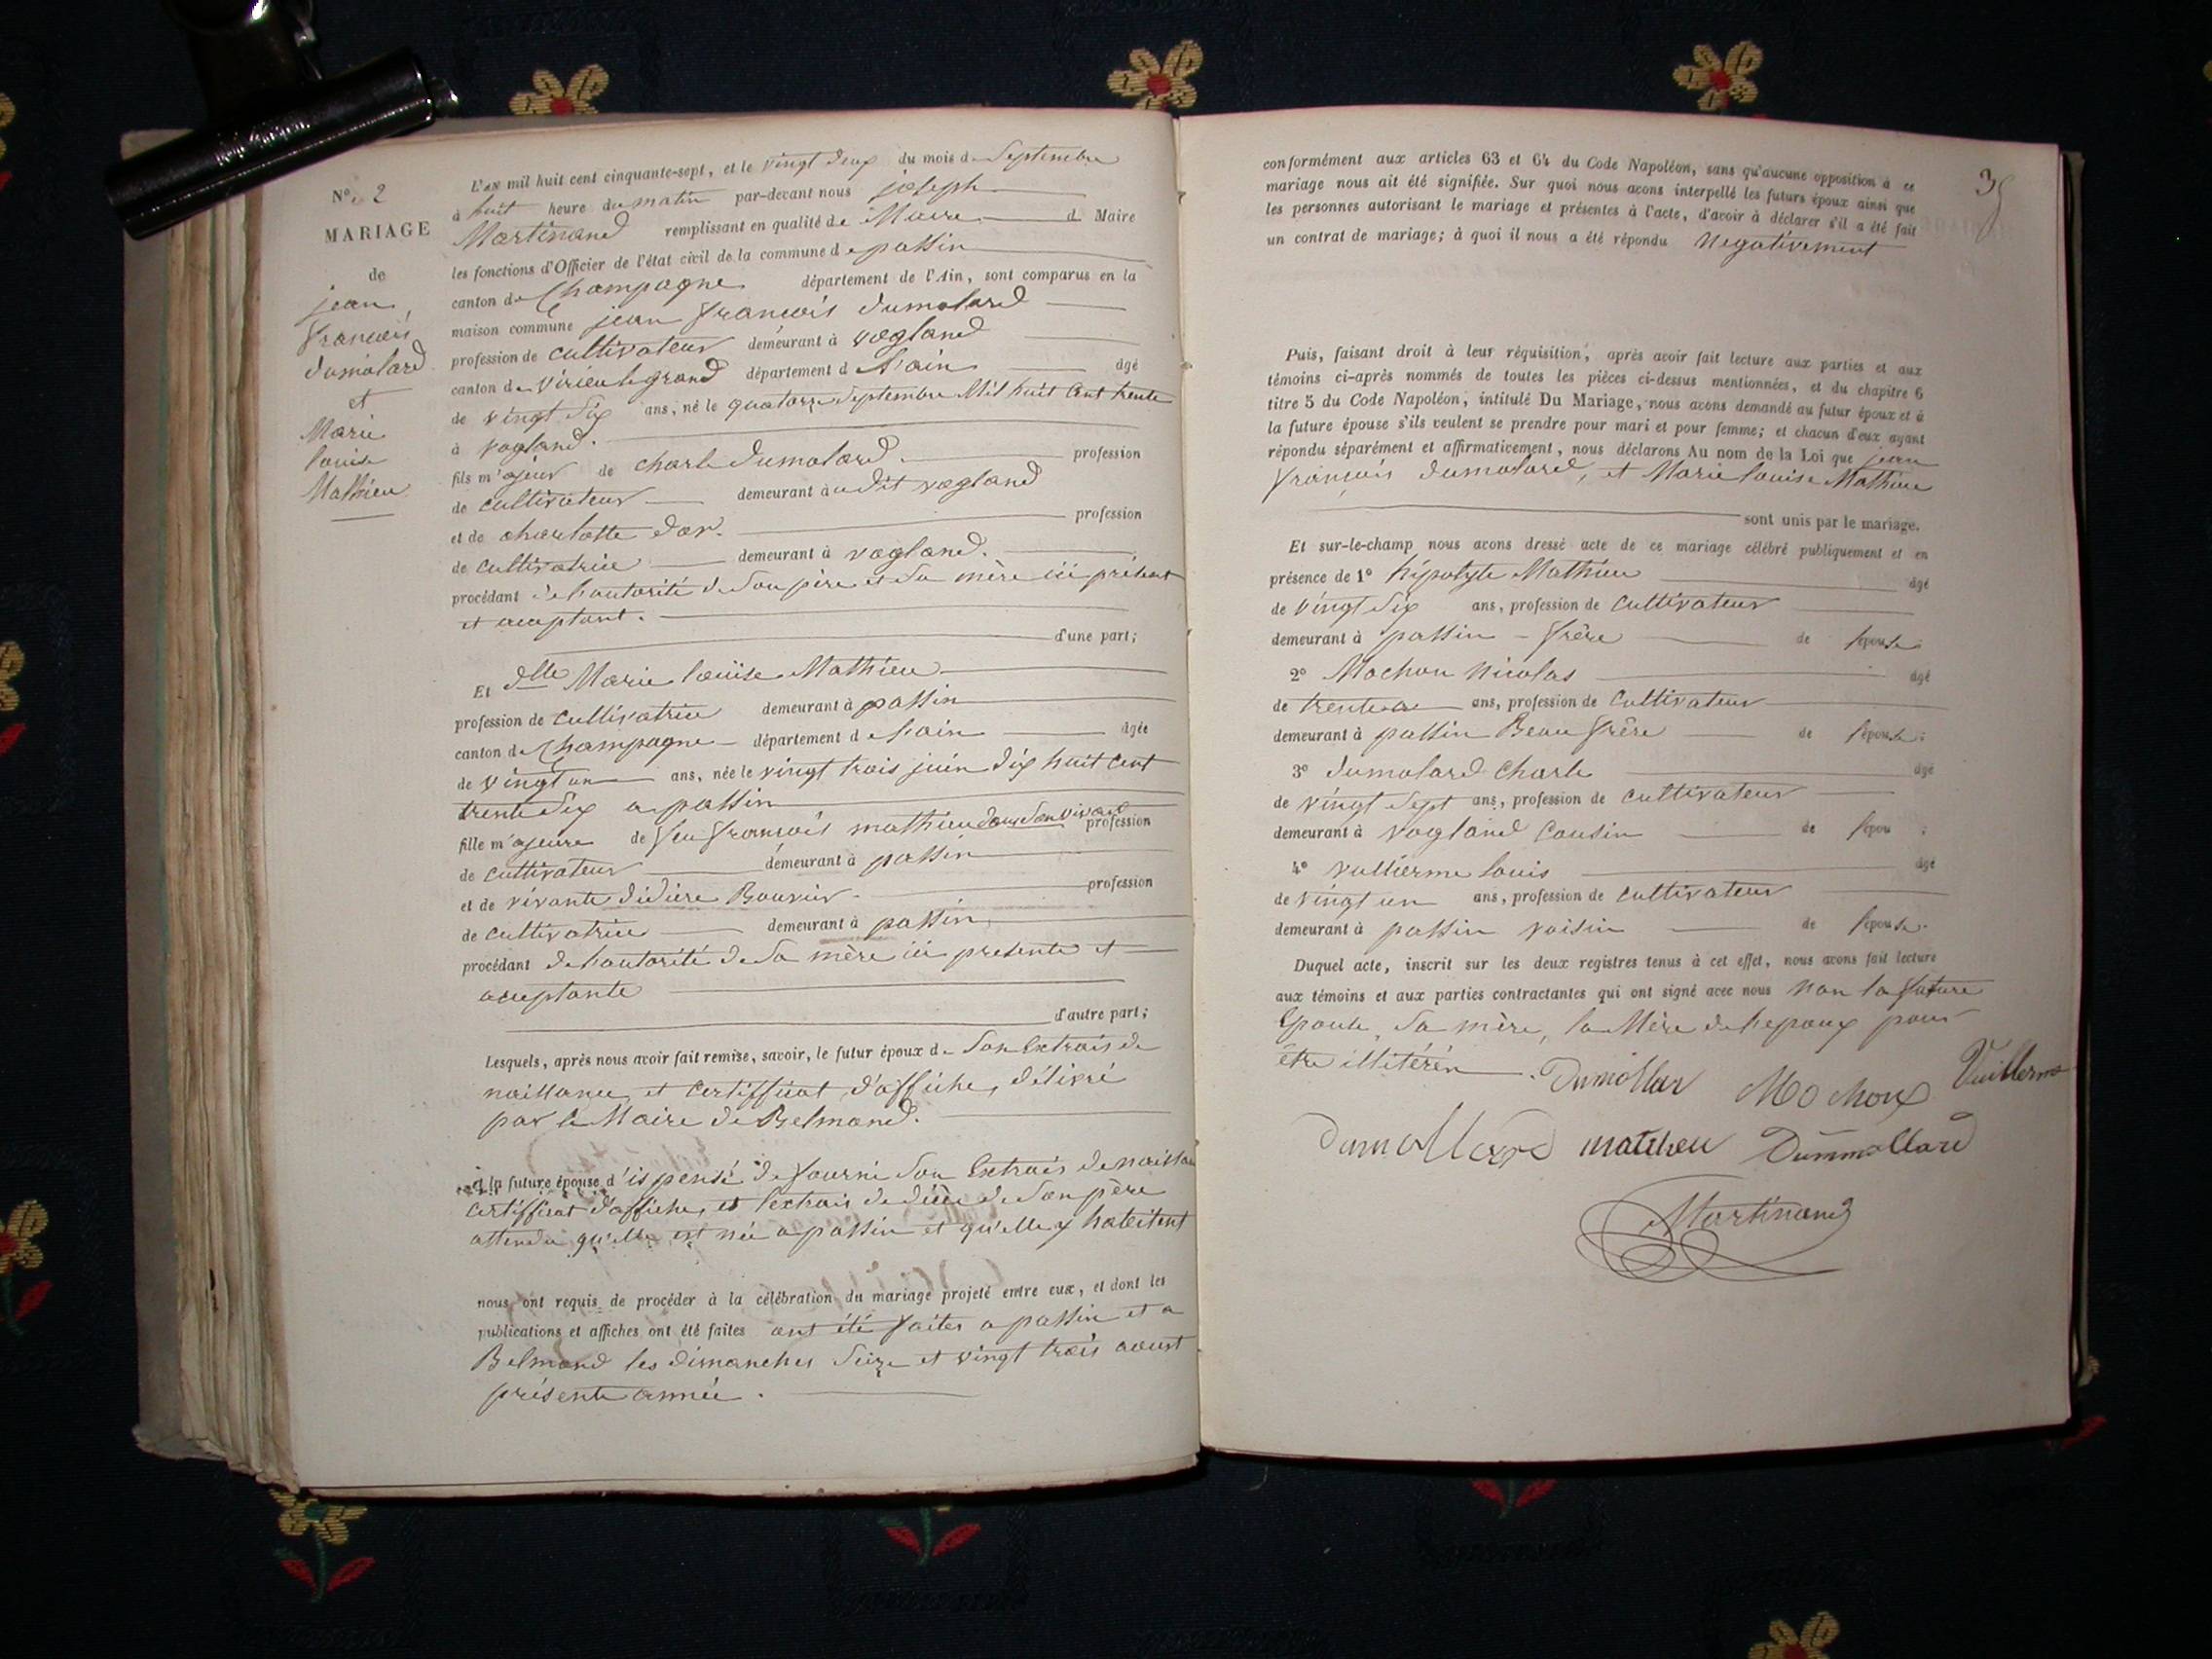 N° 2
MARIAGE
de
jean
françois
dumolard
et
Marie
louise
Mathieu
L'an mil huit cent cinquante-sept, et le vingt deux du mois de Septembre
à huit heure du matin par-devant nous joseph
Martinand remplissant en qualité de Maire d Maire
les fonctions d'Officier de l'état civil de la commune de passin
canton de Champagne département de l'Ain, sont comparus en la
maison commune jean françois dumolard
profession de cultivateur demeurant à vogland
canton de virieu le grand département de l'ain âgé
de vingt six ans, né le quatorze Septembre Mil huit Cent trente
à vogland.
fils majeur de charle dumolard. profession
de cultivateur demeurant à udit vogland
et de charlotte dor. profession
de cultivatrice demeurant à vogland.
procédant de l'autorité de Son père et Sa mère ici présent
et aceptant.
d'une part;
Et dlle Marie louise Mathieu
profession de cultivatrice demeurant à passin
canton de Champagne département de l'ain âgée
de vingt un ans, née le vingt trois juin dix huit Cent
trente Six a passin
fille majeure de feu françois mathieu dans Son vivant profession
de cultivateur demeurant à passin
et de vivante didière Bouvier. profession
de cultivatrice demeurant à passin
procédant de l'autorité de Sa mère ici presente et
aceptante
d'autre part;
Lesquels, après nous avoir fait remise, savoir, le futur époux de Son Extrais de
naissance, et Certifficat d'affiche, délivré
par le Maire de Belmond.
et la future épouse d'ispensé de fourni Son Extrais de naissan
certifficat d'affiche, et l'extrais de décè de Son père
attendu qu'elle est née a passin et qu'elle y habitent
nous ont requis de procéder à la célébration du mariage projeté entre eux, et dont les
publications et affiches ont été faites ont été faites a passin et a
Belmond les dimanches Seize et vingt trois aoust
présente année.
35
conformément aux articles 63 et 64 du Code Napoléon, sans qu'aucune opposition à ce
mariage nous ait été signifiée. Sur quoi nous avons interpellé les futurs époux ainsi que
les personnes autorisant le mariage et présentes à l'acte, d'avoir à déclarer s'il a été fait
un contrat de mariage; à quoi il nous a été répondu Negativement
Puis, faisant droit à leur réquisition, après avoir fait lecture aux parties et aux
témoins ci-après nommés de toutes les pièces ci-dessus mentionnées, et du chapitre 6
titre 5 du Code Napoléon, intitulé Du Mariage, nous avons demandé au futur époux et à
la future épouse s'ils veulent se prendre pour mari et pour femme; et chacun d'eux ayant
répondu séparément et affirmativement, nous déclarons Au nom de la Loi que jean
françois dumolard, et Marie louise Mathieu
sont unis par le mariage.
Et sur-le-champ nous avons dressé acte de ce mariage célébré publiquement et en
présence de 1° hipolyte Mathieu âgé
de vingt Six ans, profession de Cultivateur
demeurant à passin - frère de l'épouse
2° Mochon Nicolas âgé
de trente ans, profession de Cultivateur
demeurant à passin Beau frère de l'épouse;
3° dumolard Charle âgé
de vingt Sept ans, profession de Cultivateur
demeurant à vogland Cousin de l'épou ;
4° vullierme louis âgé
de vingt un ans, profession de Cultivateur
demeurant à passin voisin de l'épouse.
Duquel acte, inscrit sur les deux registres tenus à cet effet, nous avons fait lecture
aux témoins et aux parties contractantes qui ont signé avec nous Non la future
Epouse, Sa mère, la Mère de l'epoux pour
être illitérér.
Dumollar Mochon Vuillerme
Dumollard mathieu Dummollard
Martinand